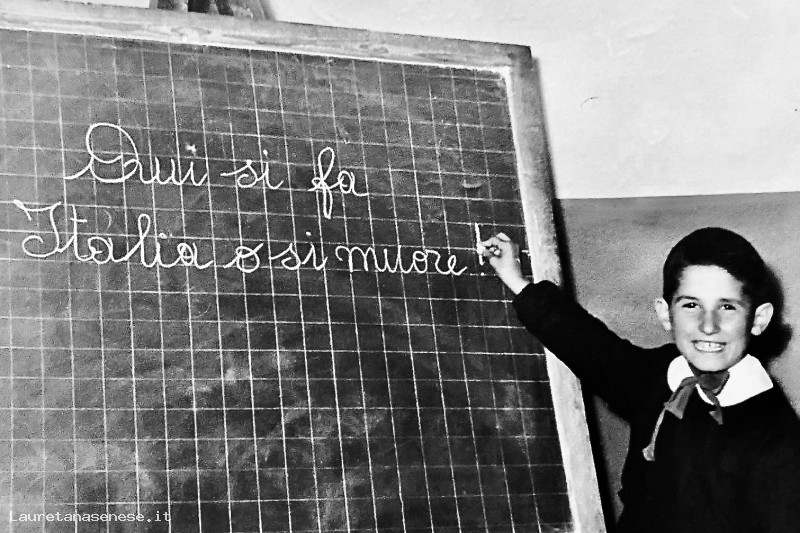 Qui si fa
Italia o si muore!
Lauretanasenese.it